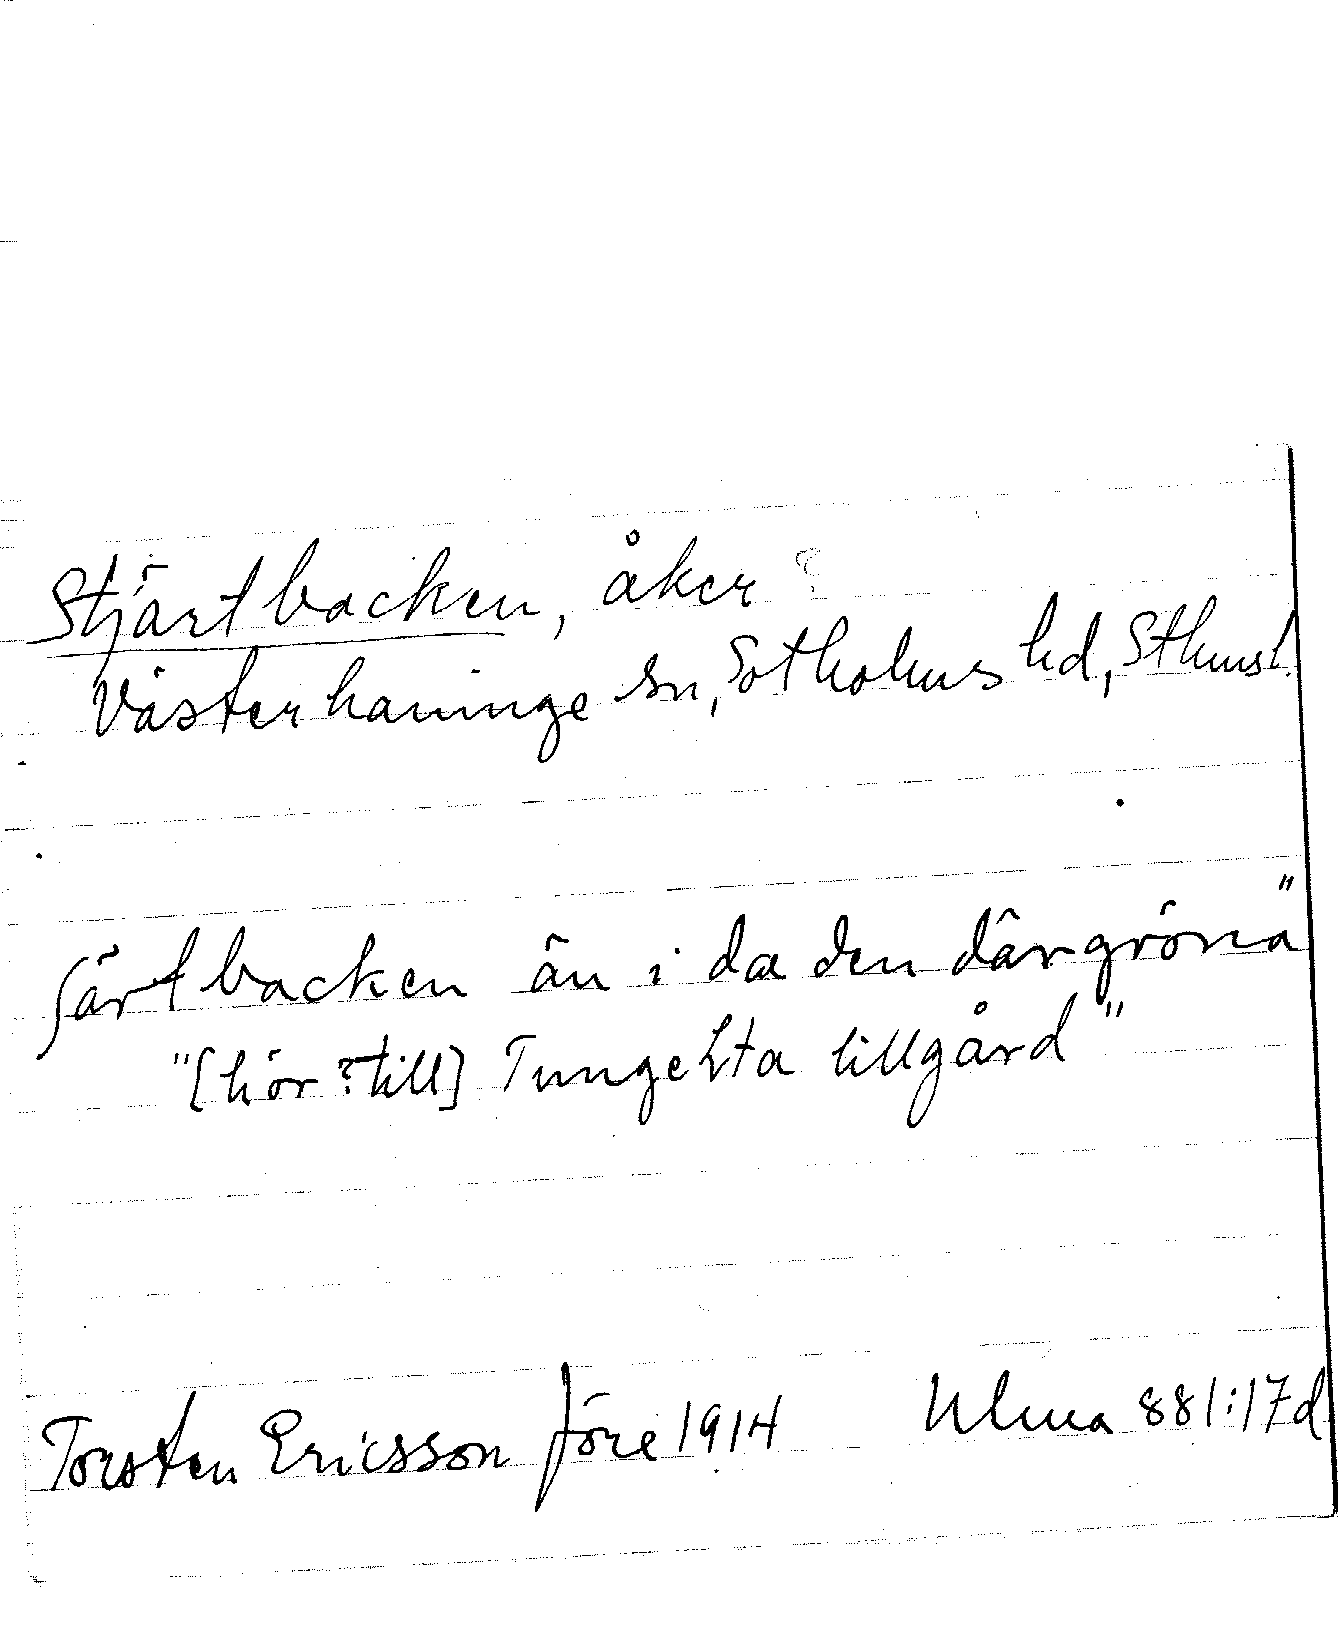 Stjärtbacken, åker ?
Västerhaninge sn, Sotholms hd, Sthmsl.
ʃärtbacken än i da den där gröna"
"[hör ? till] Tungelsta lillgård"
Torsten Ericsson före 1914 Ulma 881:17d